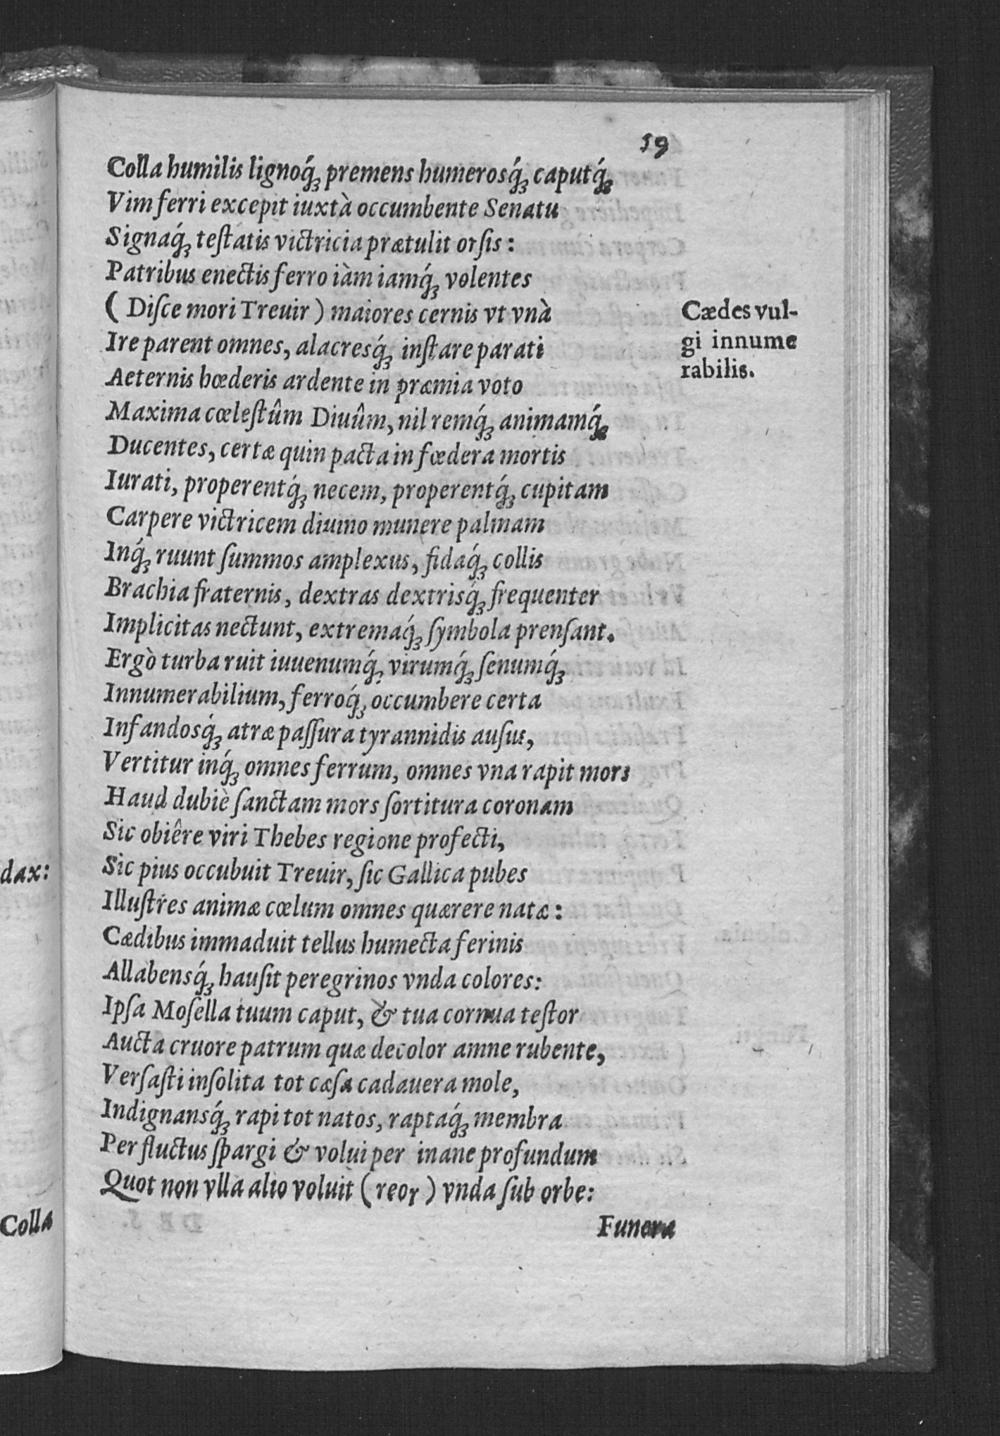 19
Colla humilis lignoq́; premens humerosq́; caputq́;
Vim ferri excepit iuxtà occumbente Senatu
Signaq́; teſtatis victricia prætulit orſis:
Patribus enectis ferro iàm iamq́; volentes
( Diſce mori Treuir ) maiores cernis vt vnà
Ire parent omnes, alacresq́; inſtare parati
Aeternis hœderis ardente in præmia voto
Maxima cœleſtûm Diuûm, nil remq́; animamq́;
Ducentes, certæ quin pacta in fœdera mortis
Iurati, properentq́; necem, properentq́; cupitam
Carpere victricem diuino munere palmam
Inq́; ruunt ſummos amplexus, fidaq́; collis
Brachia fraternis, dextras dextrisq́; frequenter
Implicitas nectunt, extremaq́; ſymbola prenſant.
Ergò turba ruit iuuenumq́; virumq́; ſenumq́;
Innumerabilium, ferroq́; occumbere certa
Infandosq́; atræ paſſura tyrannidis auſus,
Vertitur inq́; omnes ferrum, omnes vna rapit mors
Haud dubiè ſanctam mors ſortitura coronam
Sic obiêre viri Thebes regione profecti,
Sic pius occubuit Treuir, ſic Gallica pubes
Illuſtres animæ cœlum omnes quærere natæ:
Cædibus immaduit tellus humecta ferinis
Allabensq́; hauſit peregrinos vnda colores:
Ipſa Moſella tuum caput, & tua cornua teſtor
Aucta cruore patrum quæ decolor amne rubente,
Verſaſti inſolita tot cæſa cadauera mole,
Indignansq́; rapi tot natos, raptaq́; membra
Per fluctus ſpargi & volui per inane profundum
Quot non vlla alio voluit ( reor ) vnda ſub orbe:
Funera
Cædes vul-
gi innume
rabilis.
dax:
Colla